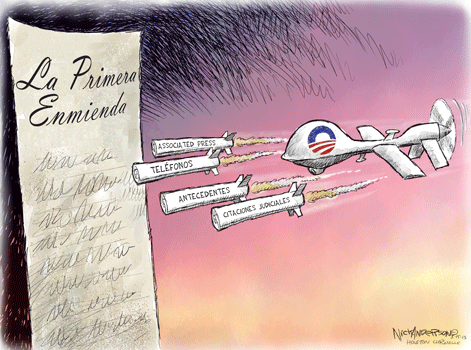 La Primera
Enmienda
ASSOCIATED PRESS
TELÉFONOS
ANTECEDENTES
CITACIONES JUDICIALES
NICK ANDERSON
HOUSTON CHRONICLE